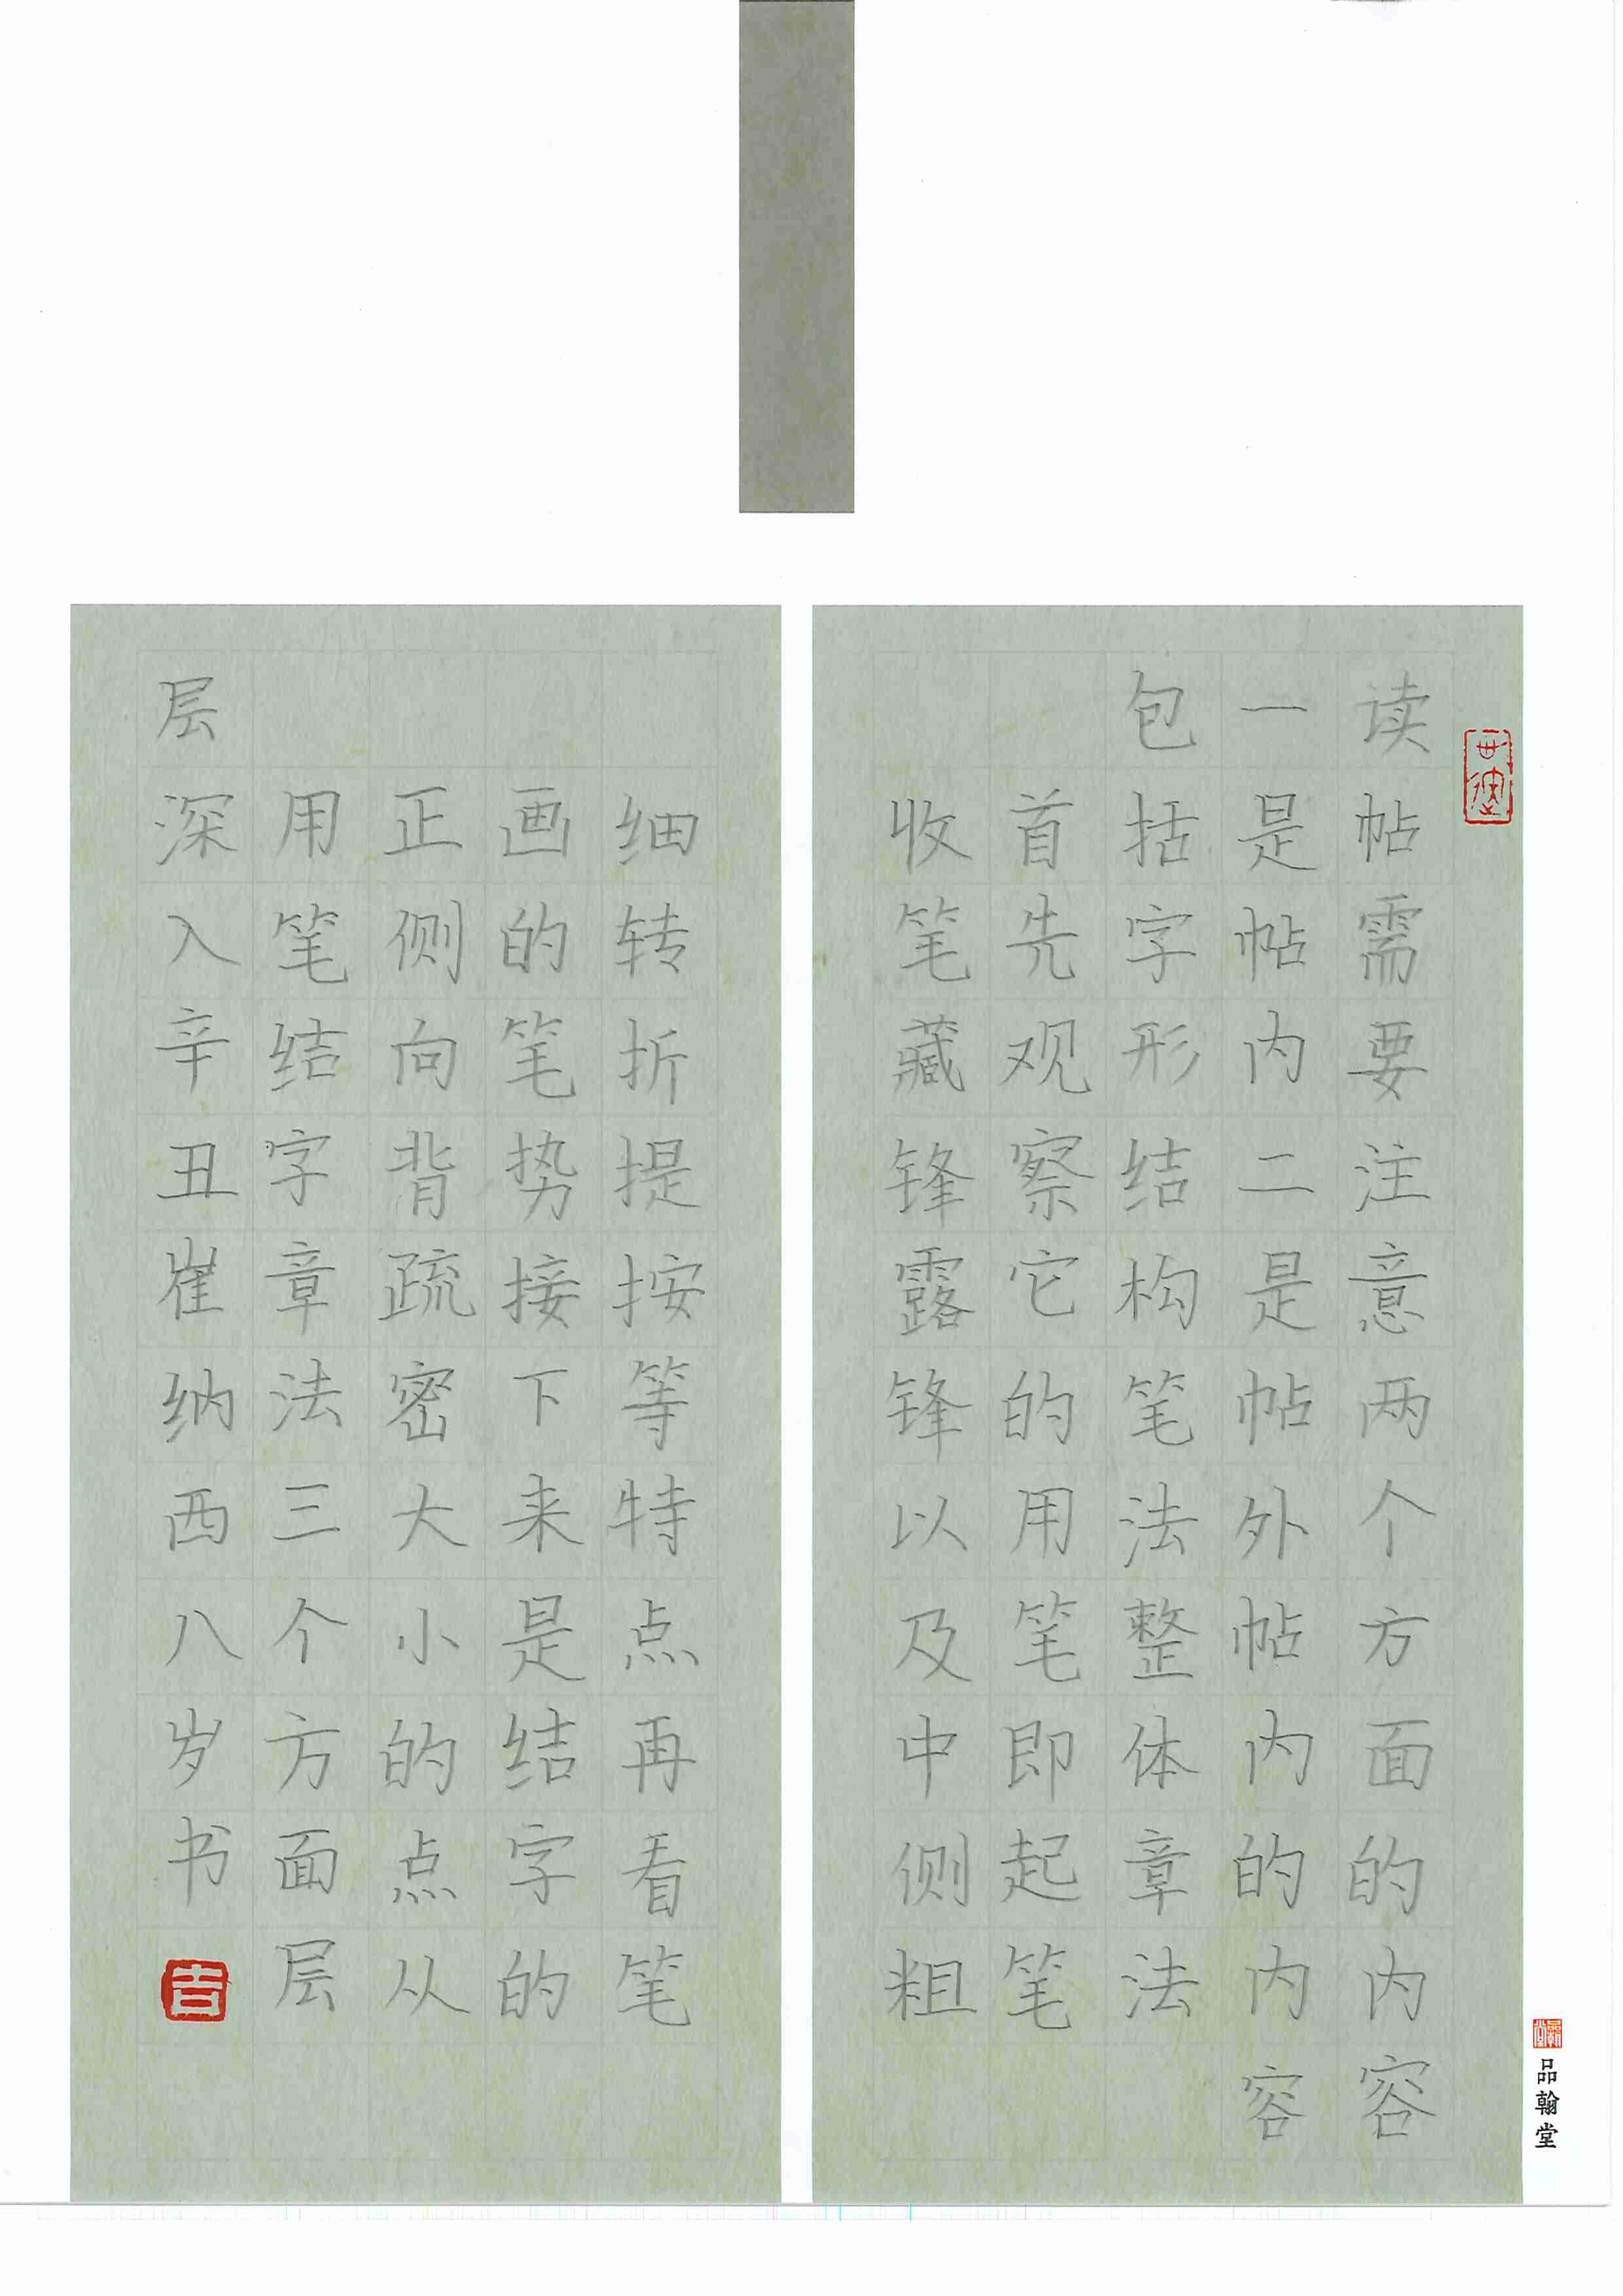 读帖需要注意两个方面的内容
一是帖内二是帖外帖内的内容
包括字形结构笔法整体章法
首先观察它的用笔即起笔
收笔藏锋露锋以及中侧粗
细转折提按等特点再看笔
画的笔势接下来是结字的
正侧向背疏密大小的点从
用笔结字章法三个方面层
层深入辛丑崔纳西八岁书
吉
品翰堂